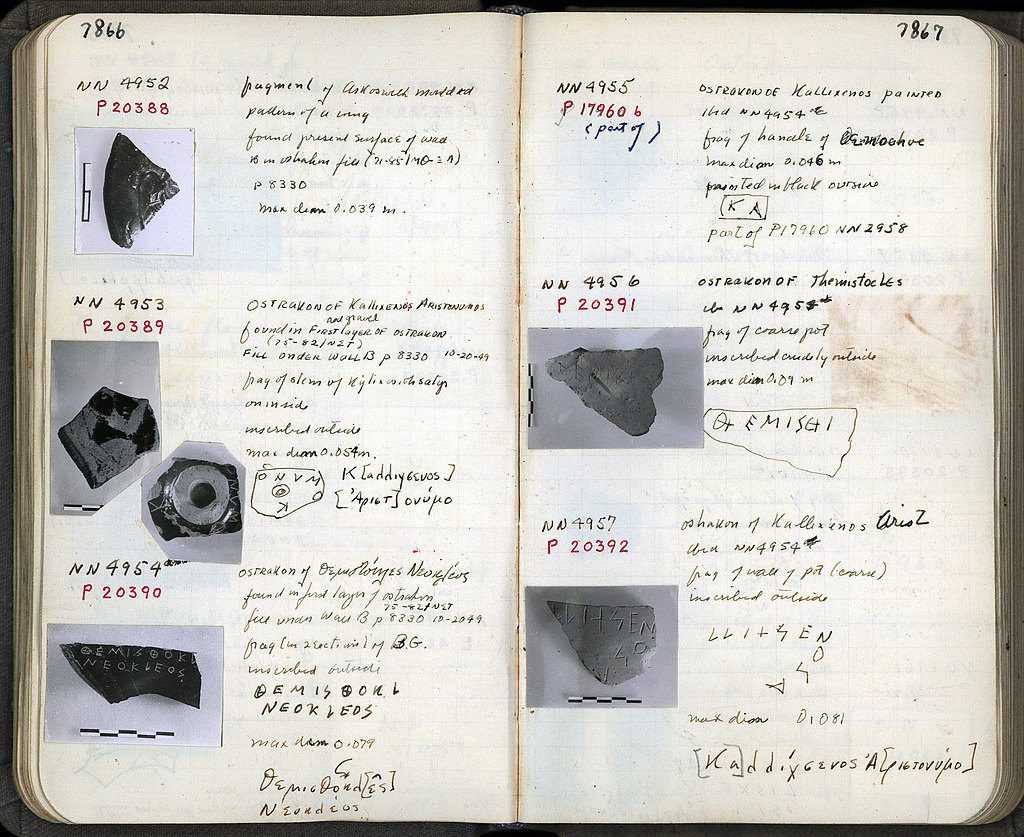 7866
NN 4952
P 20388
fragment of Askos with molded
pattern of a wing
found present surface of wall
B in ostrakon fill
P 8330
max diam 0.039 m.
NN 4953
P 20389
OSTRAKON OF Kallixenos Aristonumos
red gravel
found in FIRST layer OF OSTRAKON
(75-82/NET)
Fill under Wall B p 8330 10-20-49
frag of stem of kylix with satyr
on inside
inscribed outside
max diam 0.054 m.
O N V M
O
K
Κ[αλλιχσενος]
[Ἀριστ]ονύμο
NN 4954
P 20390
OSTRAKON of Θεμισθοκλες Νεοκλέος
found in first layer of ostrakon
75-82/NET
fill under Wall B p 8330 10-20-49
frag (in 2 sections) of B.G.
inscribed outside
ΘEMISΘOKL
NEOKLEOS
max diam 0.079
Θεμισθοκλ[ε͂ς]
Νεοκλέος
ΘEMISΘOKL
NEOKLEOS
7867
NN 4955
P 17960 b
(part of)
OSTRAKON OF Kallixenos painted
ibid NN 4954
frag of handle of Oenochoe
max diam 0.046 m
painted in black outside
K A
part of P17960 NN 2958
NN 4956
P 20391
OSTRAKON OF Themistocles
ibid NN 4954
frag of coarse pot
inscribed crudely outside
max diam 0.09 m
ΘEMISΘI
NN 4957
P 20392
ostrakon of Kallixenos Arist
ibid NN 4954
frag of wall of pot (coarse)
inscribed outside
LLI+SEN
O
S
A
max diam 0.081
[Κα]λλίχσενος Ἀ[ριστονύμο]